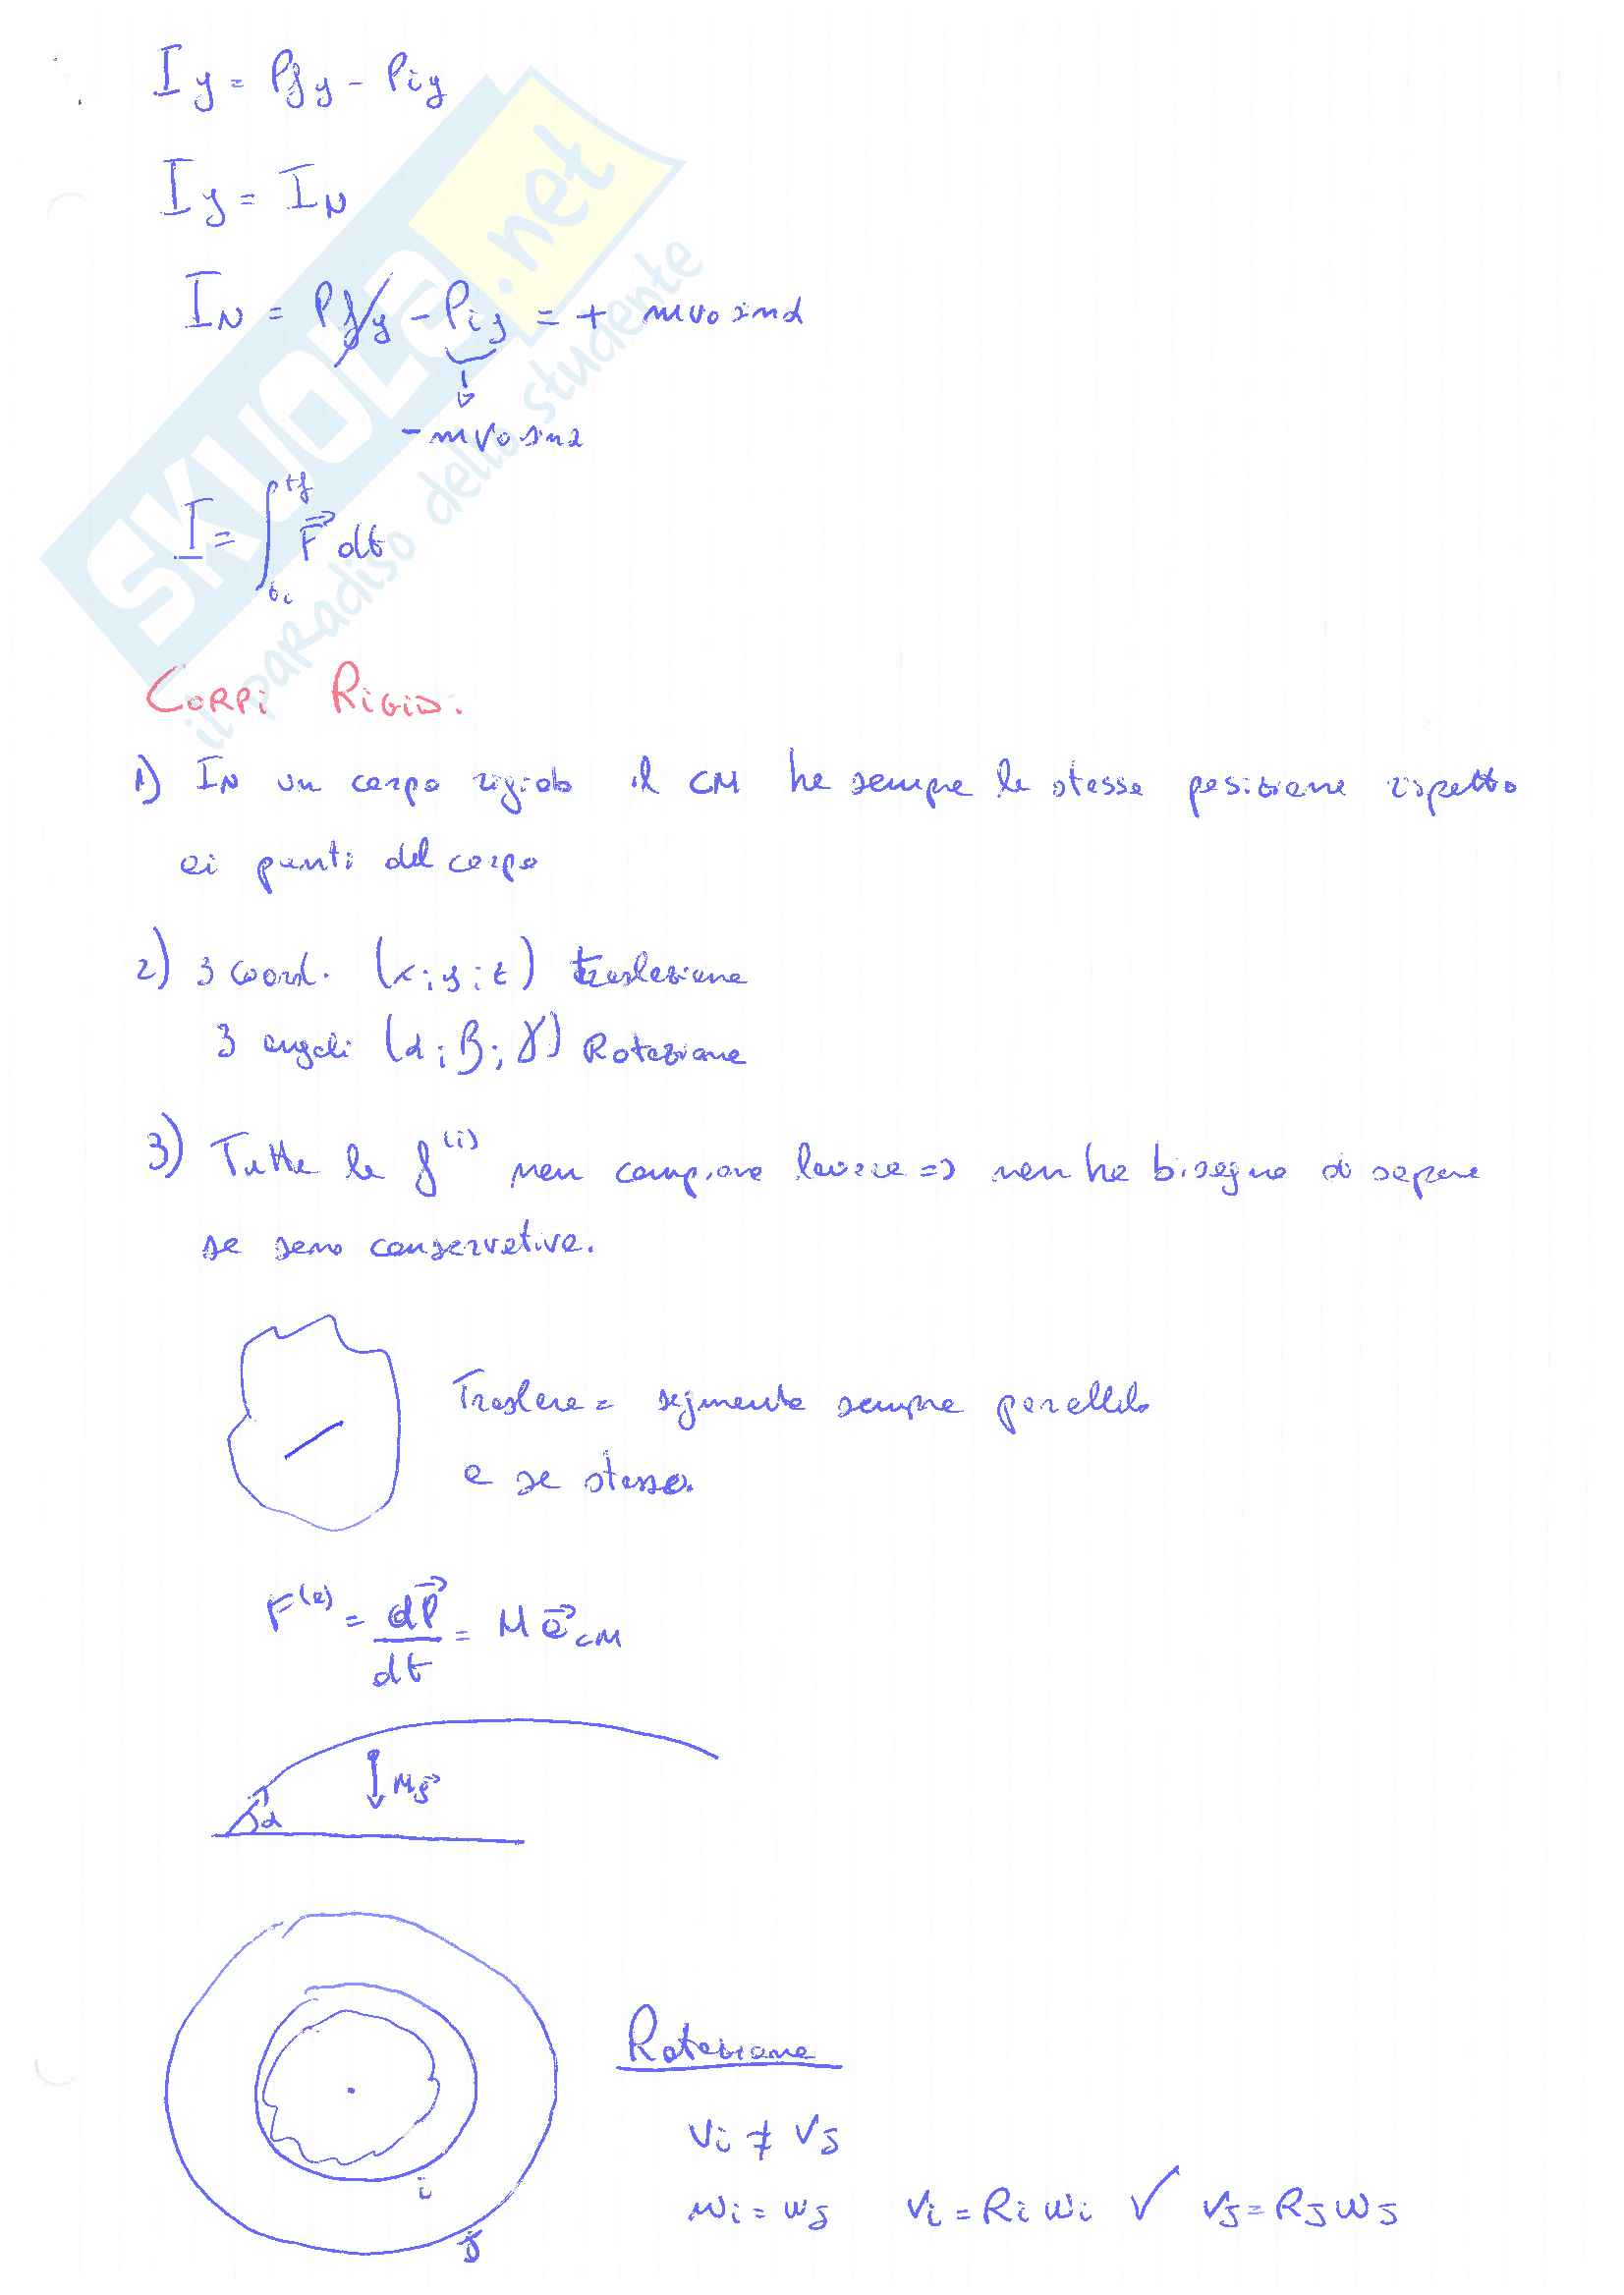 I y = Pfy - Piy
I y = I N
I N = Pfy - Piy = + mv0 sinα
- mv0 sinα
I = ∫ti tf F⃗ dt
SKUOLA.net
il paradiso dello studente
CORPI RIGIDI
1) IN un corpo rigido il CM ha sempre la stessa posizione rispetto
ai punti del corpo
2) 3 coord. (x; y; z) traslazione
3 angoli (α; β; γ) Rotazione
3) Tutte le f (i) non compiono lavoro => non ho bisogno di sapere
se sono conservative.
Traslare = segmento sempre parallelo
a se stesso.
F(e) = dP⃗/dt = M a⃗ CM
Mg⃗
α
Rotazione
vi ≠ vj
i
wi = wj vi = Ri wi ✓ vj = Rj wj
j